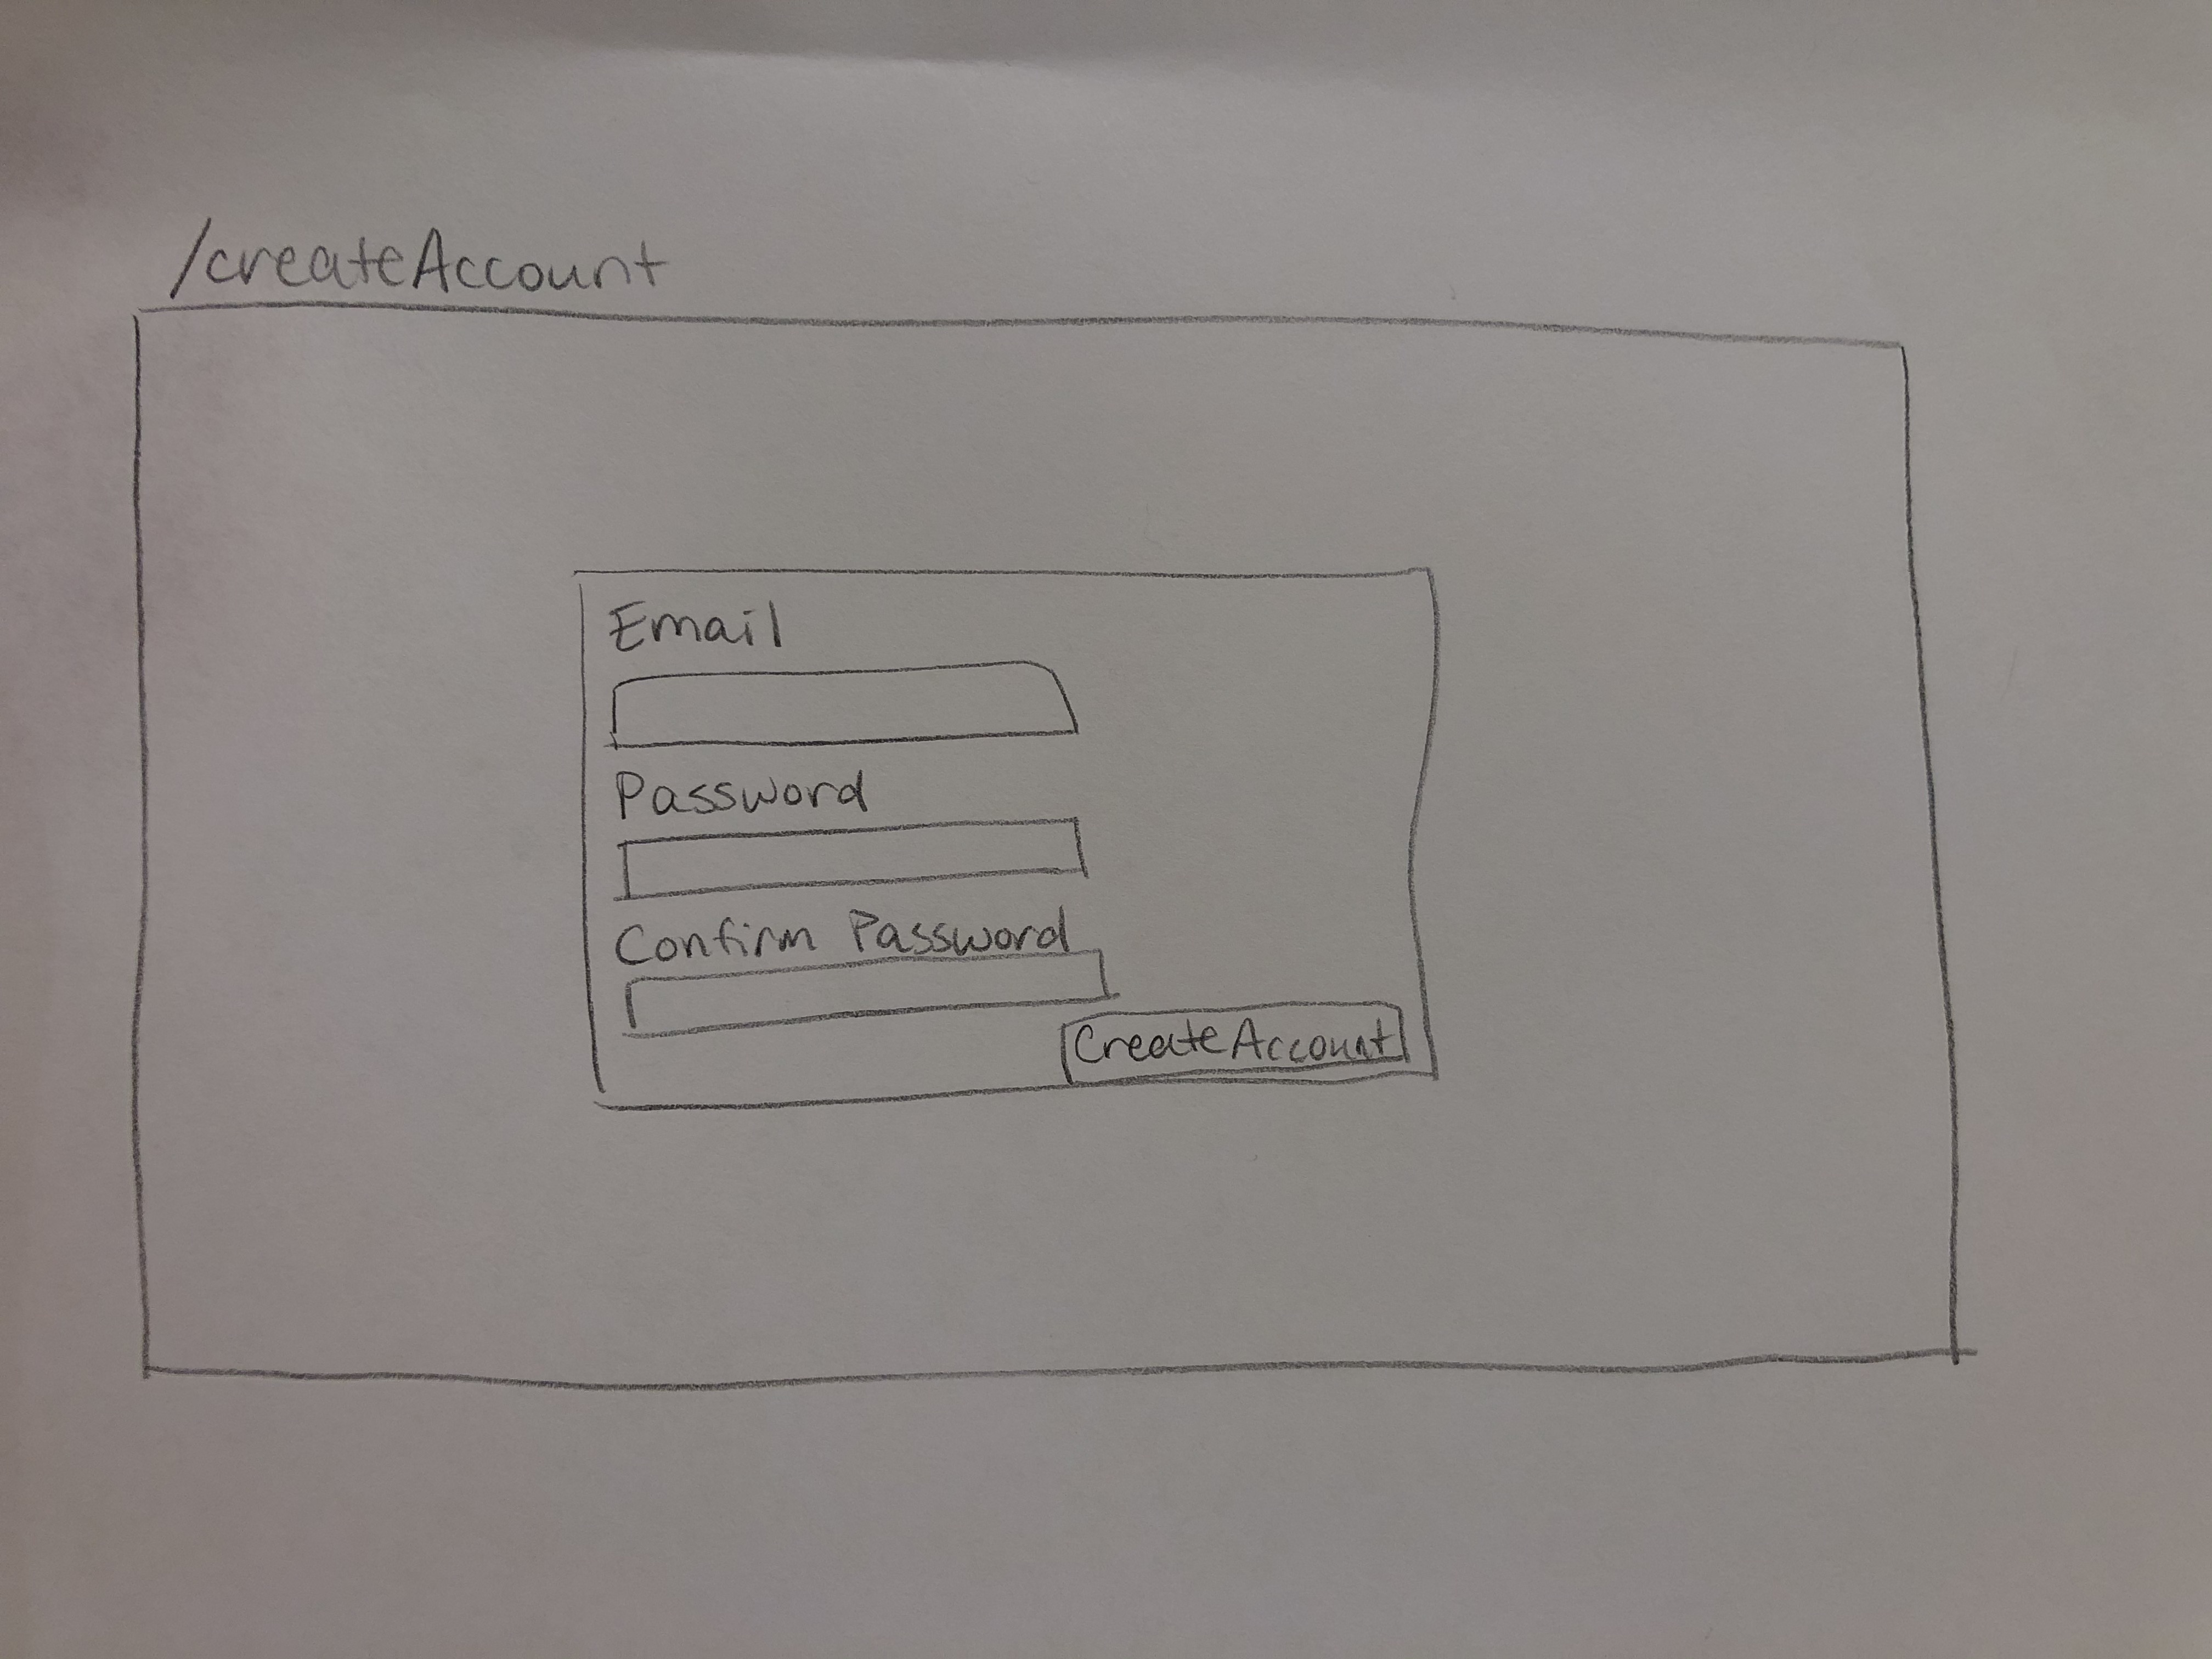 /createAccount
Email
Password
Confirm Password
Create Account